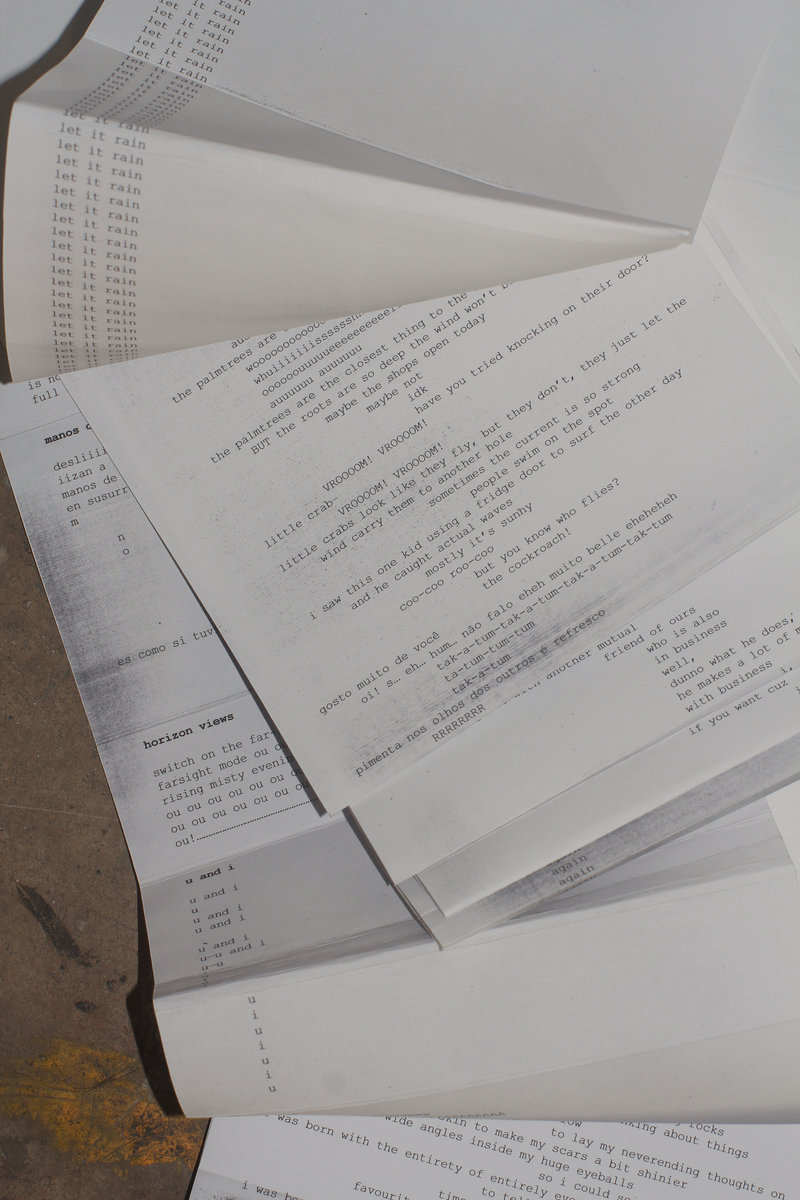 let it rain
let it rain
let it rain
let it rain
let it rain
let it rain
let it rain
let it rain
let it rain
let it rain
let it rain
let it rain
let it rain
let it rain
let it rain
let it rain
let it rain
let it rain
let it rain
let it rain
let it rain
let it rain
let it rain
let it rain
the palmtrees are
whuiiiiiiissssssh
auuuuuu auuuuuu
the palmtrees are the closest thing to the
BUT the roots are so deep the wind won't
maybe the shops open today
maybe not
idk
have you tried knocking on their door?
VROOOOM! VROOOOM!
little crab-
VROOOOM! VROOOOM!
little crabs look like they fly, but they don't, they just let the
wind carry them to another hole
sometimes the current is so strong
people swim on the spot
i saw this one kid using a fridge door to surf the other day
and he caught actual waves
mostly it's sunhy
coo-coo roo-coo
but you know who flies?
the cockroach!
gosto muito de você
oi! s… eh… hum… não falo eheh muito belle eheheheh
tak-a-tum-tak-a-tum-tak-a-tum-tak-a-tum-tak-tum
ta-tum-tum-tum
tak-a-tum
pimenta nos olhos dos outros é refresco
RRRRRRRR
another mutual
friend of ours
who is also
in business
well,
dunno what he does,
he makes a lot of
with business
if you want cuz i,
again
again
full
manos
desliiii
iizan a
manos de
en susurr
m
n
o
es como si tuv
horizon views
switch on the far-
farsight mode ou
rising misty eveni
ou ou ou ou ou ou
ou ou ou ou ou ou
ou!
u and i
u and i
u
u and i
u and i
u and i
u—u and i
u—u
u
i
u
i
u
i
u
rocks
thinking about things
skin to make my scars a bit shinier
to lay my neverending thoughts on
wide angles inside my huge eyeballs
was born with the entirety of entirely
so i could
i was
favourit
to tel